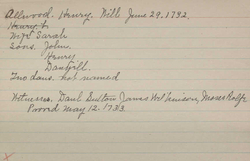 Allwood, Henry. Will June 29, 1732.
Henry
Wife Sarah
Sons, John,
Henry
Two daus. not named
Witnesses. Paul Sutton James Wilkinson, Moses Rolfe
Proved May 12. 1733.